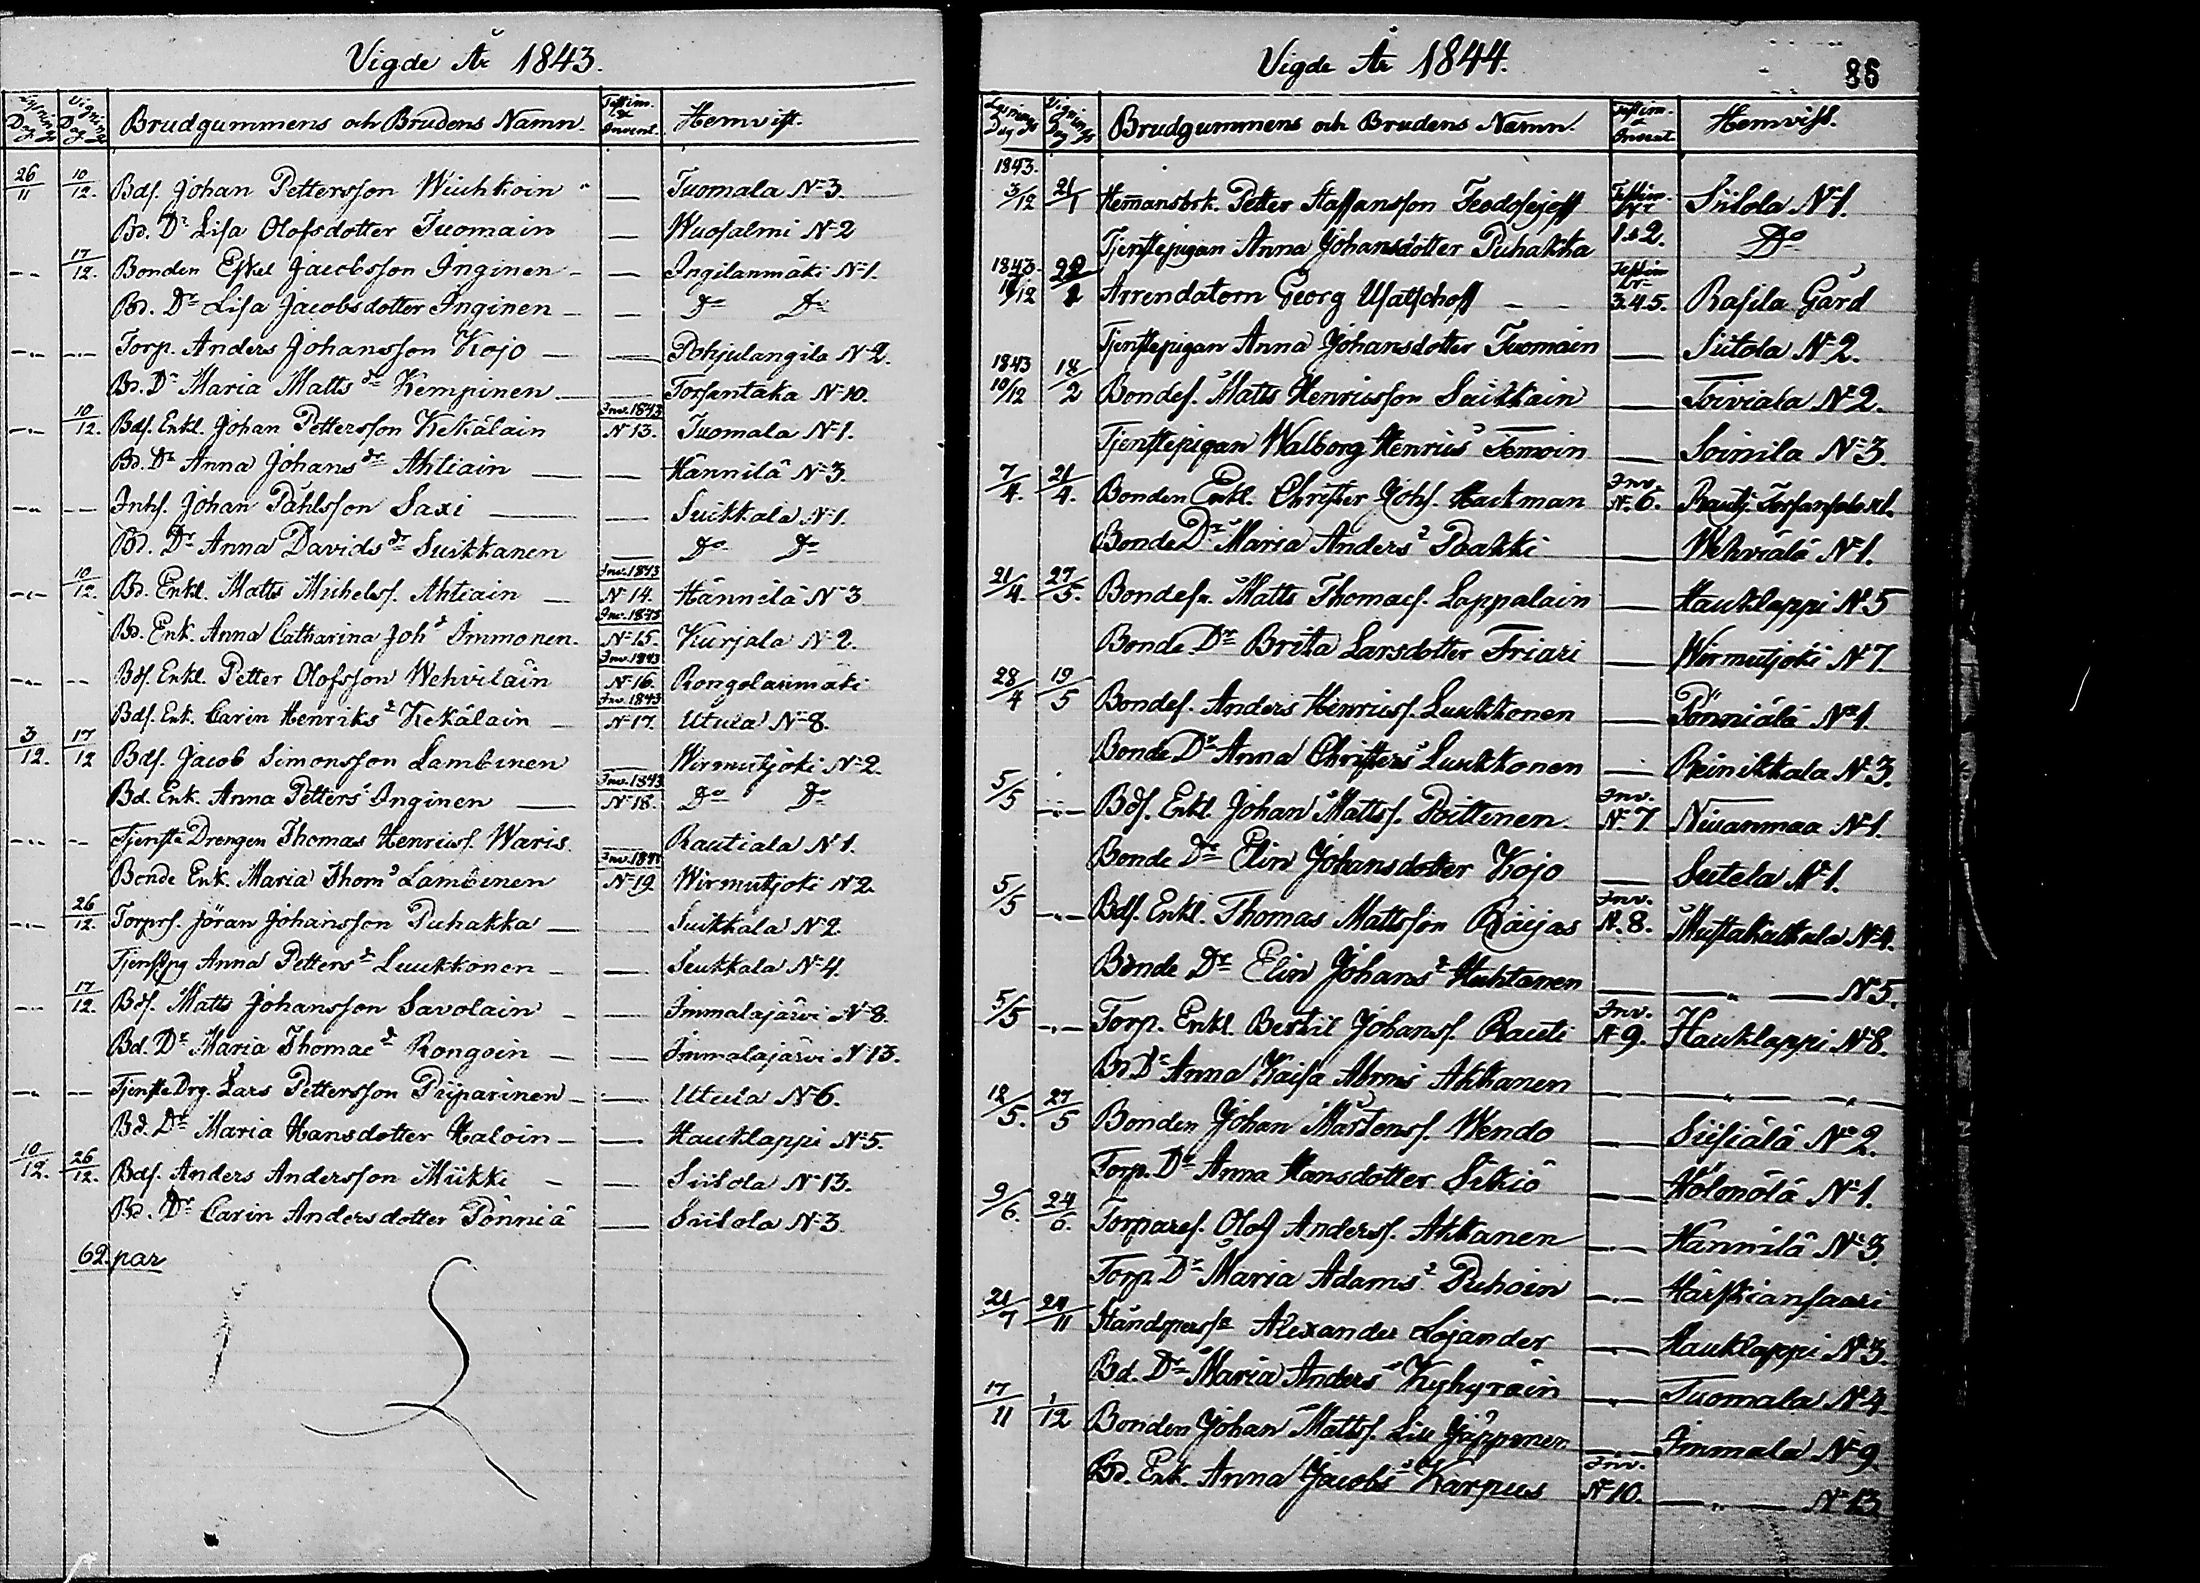 Vigde År 1843.
Lysnings Dag Vignings Dag Brudgummens och Brudens Namn. Testim. & Invent. Hemvist.
26/11 10/12. Bdf. Johan Pettersson Wiuhkoin — Tuomala No 3.
Bd. Dr Lisa Olofsdotter Tuomain — Wuosalmi No 2
-"- 17/12. Bonden Eskel Jacobsson Inginen — Ingilanmäki No 1.
Bd. Dr Lisa Jacobsdotter Inginen — Do Do
-"- -"- Torp. Anders Johansson Kojo — Pohjulangila No 2.
Bd. Dr Maria Matts dr Kempinen — Torsantaka No 10.
-"- 10/12. Bdf. Enkl. Johan Pettersson Kekäläin Inv. 1843 No 13. Tuomala No 1.
Bd. Dr Anna Johans dr Ahtiain — Hännilä No 3.
-"- -"- Inhs. Johan Påhlsson Saxi — Suikkala No 1.
Bd. Dr Anna Davids dr Suikkanen — Do Do
-"- 10/12. Bd. Enkl. Matts Michelsf. Ahtiain Inv. 1843 No 14. Hännilä No 3
Bd. Enk. Anna Catharina Joh dr Immonen. Inv. 1843 No 15. Kurjala No 2.
-"- -"- Bdf. Enkl. Petter Olofsson Wehviläin Inv. 1843 No 16. Rongolanmäki
Bdf. Enk. Carin Henriks dr Kekäläin Inv. 1843 No 17. Utula No 8.
3/12. 17/12 Bdf. Jacob Simonsson Lambinen Wirmutjoki No 2.
Bd. Enk. Anna Petters dr Inginen — Inv. 1843 No 18. Do Do
-"- -"- Tjenste Drengen Thomas Henricsf. Waris. Rautiala No 1.
Bonde Enk. Maria Thom dr Lambinen No 19. Wirmutjoki No 2.
-"- 26/12. Torprs. Jöran Johansson Puhakka — Suikkala No 2.
Tjenstpg Anna Petters dr Luukkonen — Suikkala No 4.
-"- 17/12. Bdf. Matts Johansson Savolain — Immalajärvi No 8.
Bd. Dr Maria Thomae dr Rongoin — Immalajärvi No 13.
-"- -"- Tjenste Drg. Lars Pettersson Piiparinen — Utula No 6.
Bd. Dr Maria Hansdotter Haloin — Hauklappi No 5.
10/12. 26/12. Bdf. Anders Andersson Miikki — Siitola No 13.
Bd. Dr Carin Andersdotter Pönniä — Siitola No 3.
62. par
Vigde År 1844.
86
Lysnings Dag Vignings Dag Brudgummens och Brudens Namn. Testim. & Invent. Hemvist.
1843. 3/12 21/1 Hemansbrk. Petter Staffansson Feodosejeff Testim. No 1 & 2. Siitola No 1.
Tjenstepigan Anna Johansdotter Puhakka Do
1843. Arrendatorn Georg Usatschoff — Testim No 3.4.5. Rasila Gård
Tjenstepigan Anna Johansdotter Tuomain — Siitola No 2.
1843 10/12 18/2 Bondes. Matts Henricsson Suikkain — Toiviala No 2.
Tjenstepigan Walborg Henrics dr — Soinila No 3.
7/4. 21/4. Bonden Enkl. Christer Johs. Hackman Inv. No 6. Rautj.
Bonde Dr Maria Anders dr Paakki — Wehviälä No 1.
21/4. 27/5. Bondes. Matts Thomaes. Lappalain — Hauklappi No 5
Bonde Dr Brita Larsdotter Friari — Wirmutjoki No 7.
28/4 19/5 Bondes. Anders Hinricsf. Luukkonen — Pönniälä No 1.
Bonde Dr Anna Christers dr Luukkonen — Reinikkala No 3.
5/5 -"- Bdf. Enkl. Johan Mattsf. Poittinen. Inv. No 7 Niuanmaa No 1.
Bonde Dr Elin Johansdotter Kojo — Seitela No 1.
5/5 -"- Bdf. Enkl. Thomas Mattsson Räijas Inv. No 8. No 4.
Bonde Dr Elin Johans dr Huhtanen — -"- No 5.
5/5 -"- Torp. Enkl. Bertil Johansf. Rauti Inv. No 9. Hauklappi No 8.
Bd Dr Anna Kaisa Abrms dr Akkanen — -"- -"-
12/5. 27/5 Bonden Johan Mårtensf. Wendo — Siisiälä No 2.
Torp. Dr Anna Hansdotter Sikiö — Hölönölä No 1.
9/6. 24/6. Torpares. Olof Andersf. Akkanen — Hännilä No 3.
Torp. Dr Maria Adams dr Puhoin — Härskiansaari
21/7 24/11 Ståndspersn Alexander Lojander — Hauklappi No 3.
Bd. Dr Maria Anders dr Kyhyräin — Tuomala No 4.
17/11 1/12 Bonden Johan Mattsf. Liu Jäppinen — Immala No 9.
Bd. Enk. Anna Jacobs dr Karpus Inv. No 10. -"- No 13.